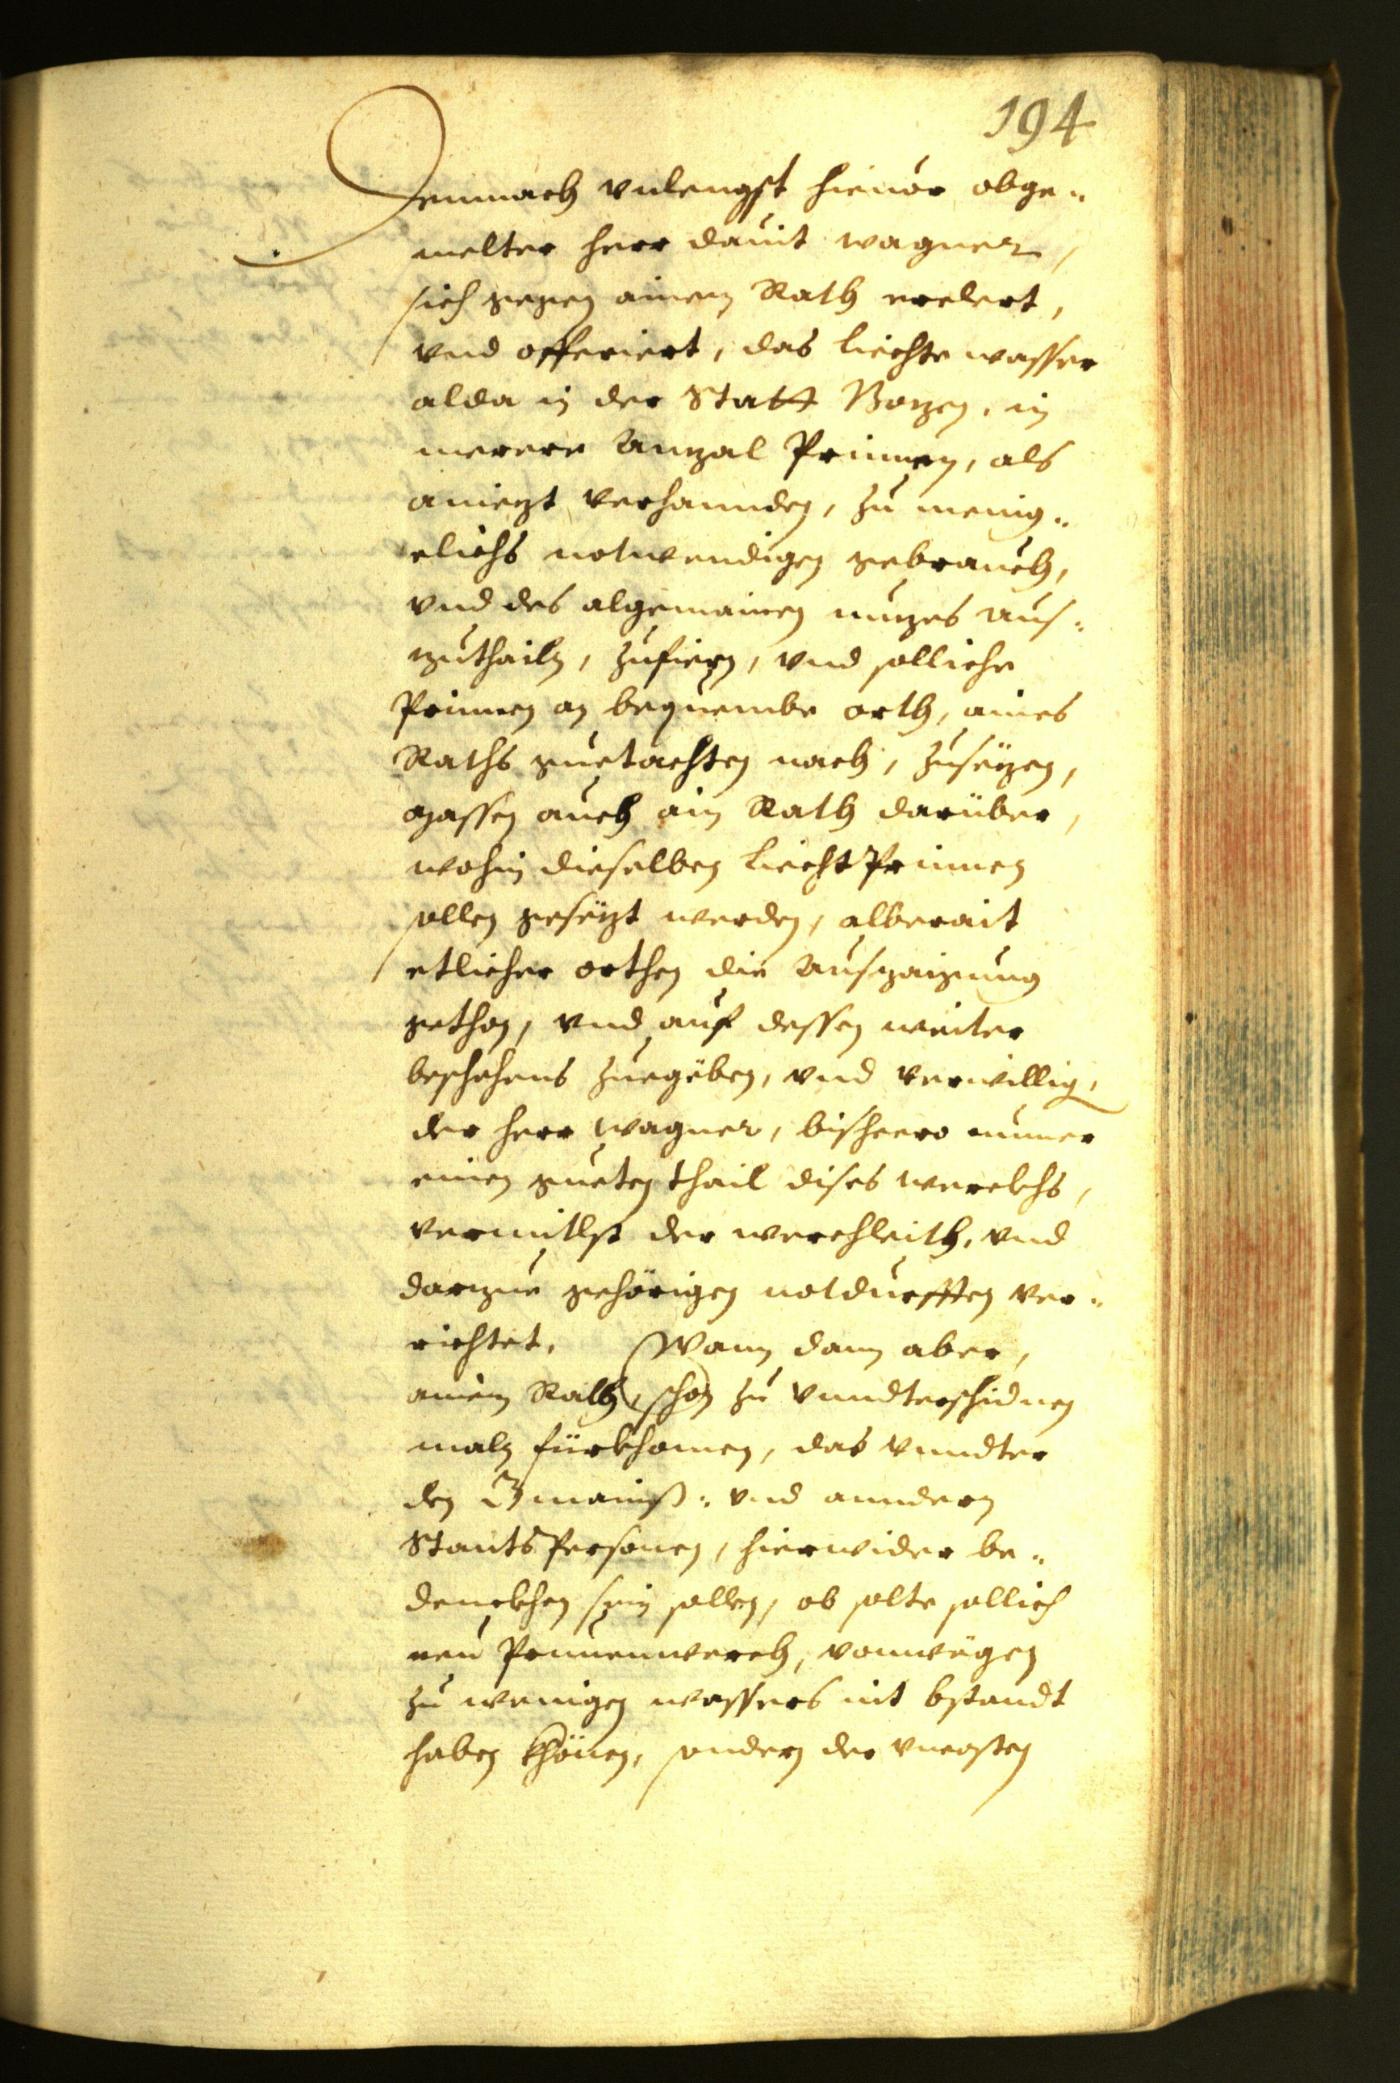 194
Demnach vnlengst hieuor obge¬
melter herr dauit wagner,
sich gegen ainem Rath erclert,
vnd offeriert, das liechte wasser
alda in der Statt Bozen, in
merere Anzal Prinnen, als
aniezt verhannden, zu menig¬
clichs notwendigen gebrauch,
vnd des algemainen nuzes aus¬
zuthailn, zufiern, vnd solliche
Prinnen an bequembe orth, aines
Raths guetachten nach, zusezen,
massen auch ain Rath darüber,
wohin dieselben liecht Prinnen
sollen gesezt werden, alberait
etlicher orthen die Auszaigung
gethon, vnd auf dessen weiter
beschehens zuegeben, vnd verwillig,
der herr wagner, bisheero nunmer
einen gueten thail dises werckhs,
vermitlst der werchleith, vnd
darzue gehörigen notdurfften ver¬
richtet. Wann dann aber,
ainem Rath, schon zu vnndterschidnen
maln fürkhomen, das vnndter
den Gmainß- vnd anndern
Stants Personen, hierwider be¬
denckhen sein sollen, ob solte sollich
neu Prunenwerch, vonwegen
zu wenigen wassers nit bstandt
haben khönen, sondern der vncosten